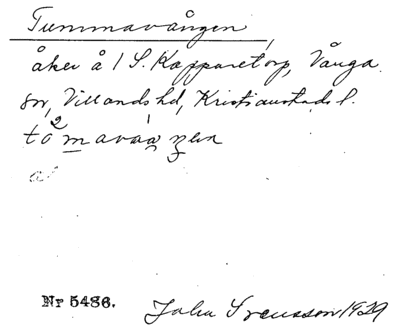 Tummavången
åker å 1 S. Kapparetorp, Vånga
sn, Villands hd, Kristianstads l.
Nr 5486. John Svensson 1929